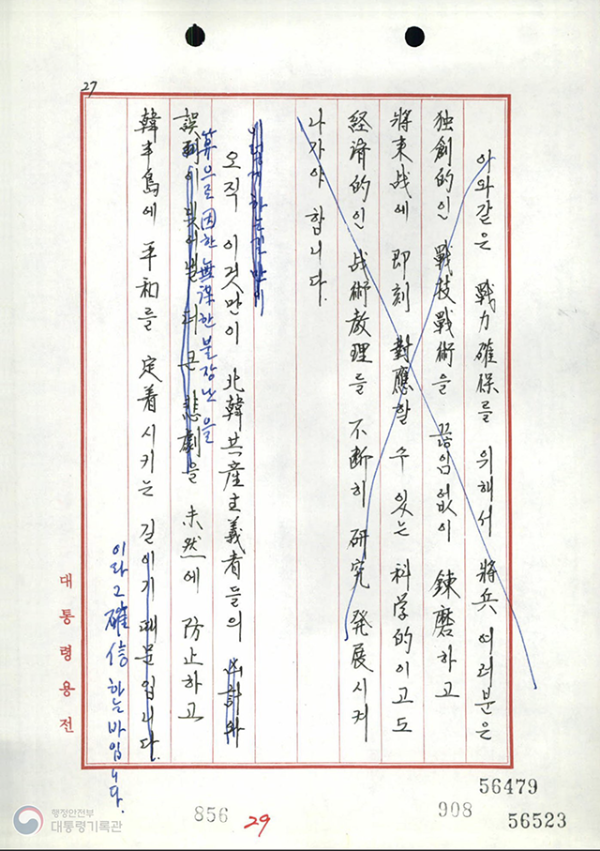 27
이와같은 戰力確保를 위해서 將兵여러분은
独創的인 戰技戰術을 끊임없이 鍊磨하고
將來战에 即刻 對應할 수 있는 科学的이고도
経済的인 战術教理를 不断히 研究 発展시켜
나가야 합니다.
오직 이것만이 北韓共産主義者들의 凶計와
算으로 因한 無謀한 불장난을
誤判이 빚어낼 더 큰 悲劇을 未然에 防止하고
韓半島에 平和를 定着시키는 길이기 때문입니다.
이라고 確信하는 바입니다.
대통령용전
56479
856
29
908
56523
행정안전부
대통령기록관